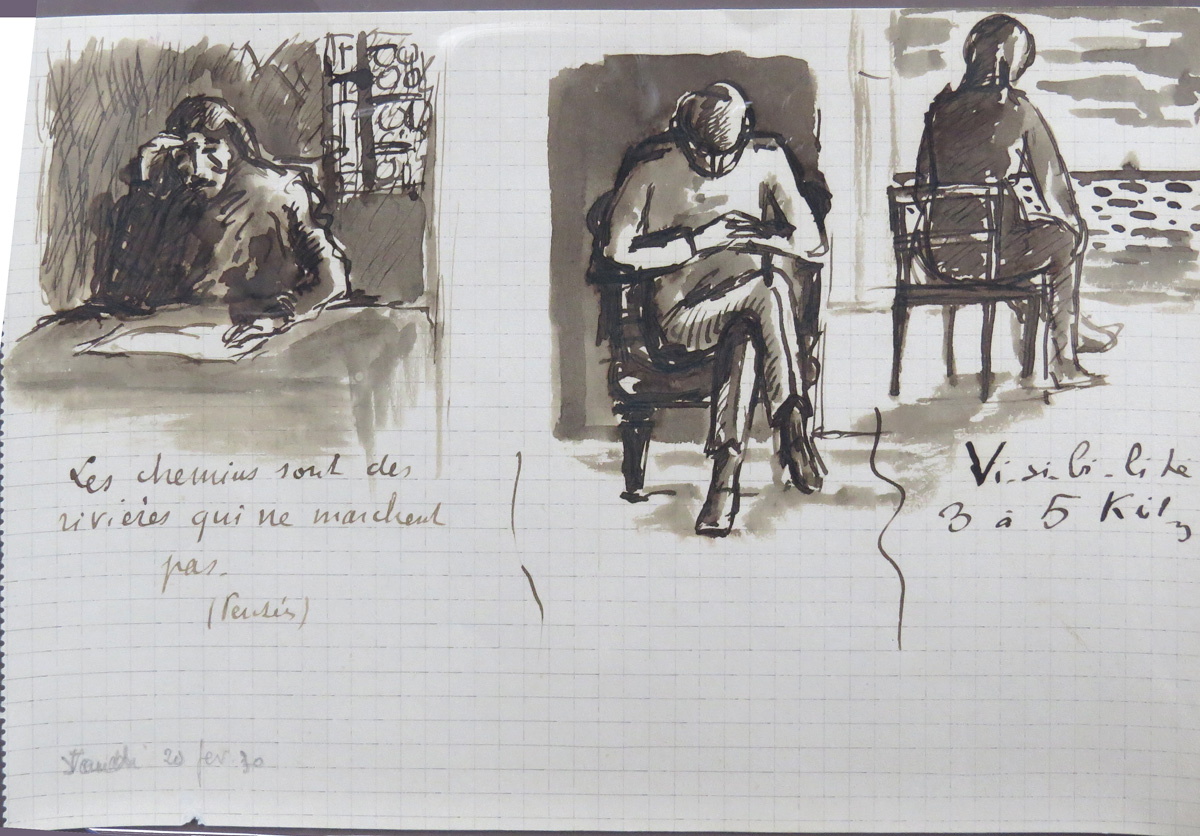 Les chemins sont des
rivières qui ne marchent
pas.
(Pensées)
Vi-si-bi-lité
3 à 5 Kil
20 fev. 30